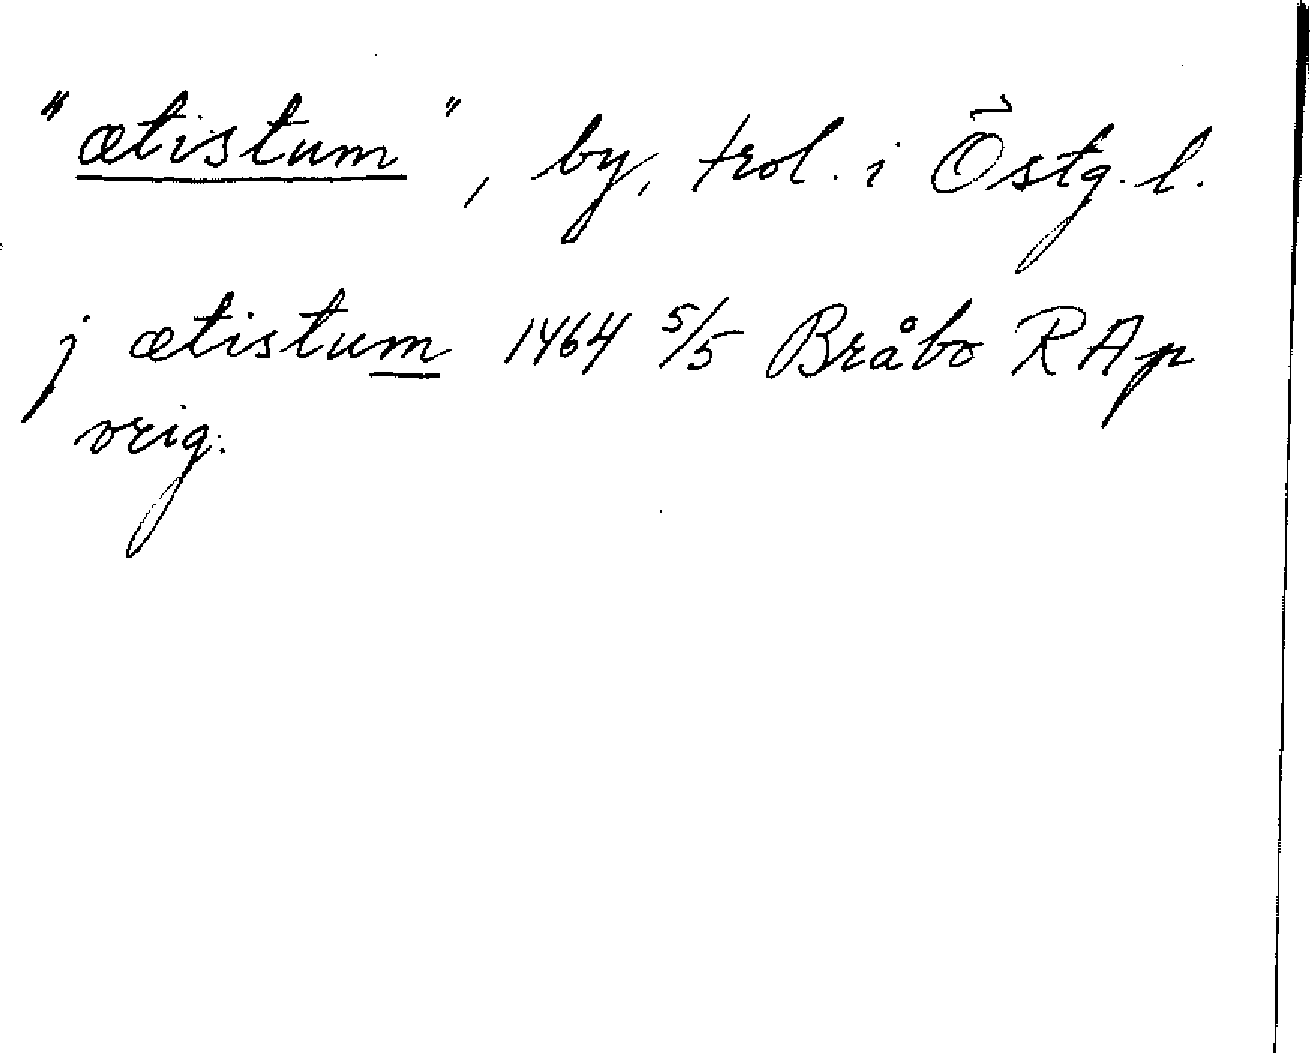 "ætistum", by, trol. i Östg. l.
j ætistum 1464 5/5 Bråbo RAp
orig.